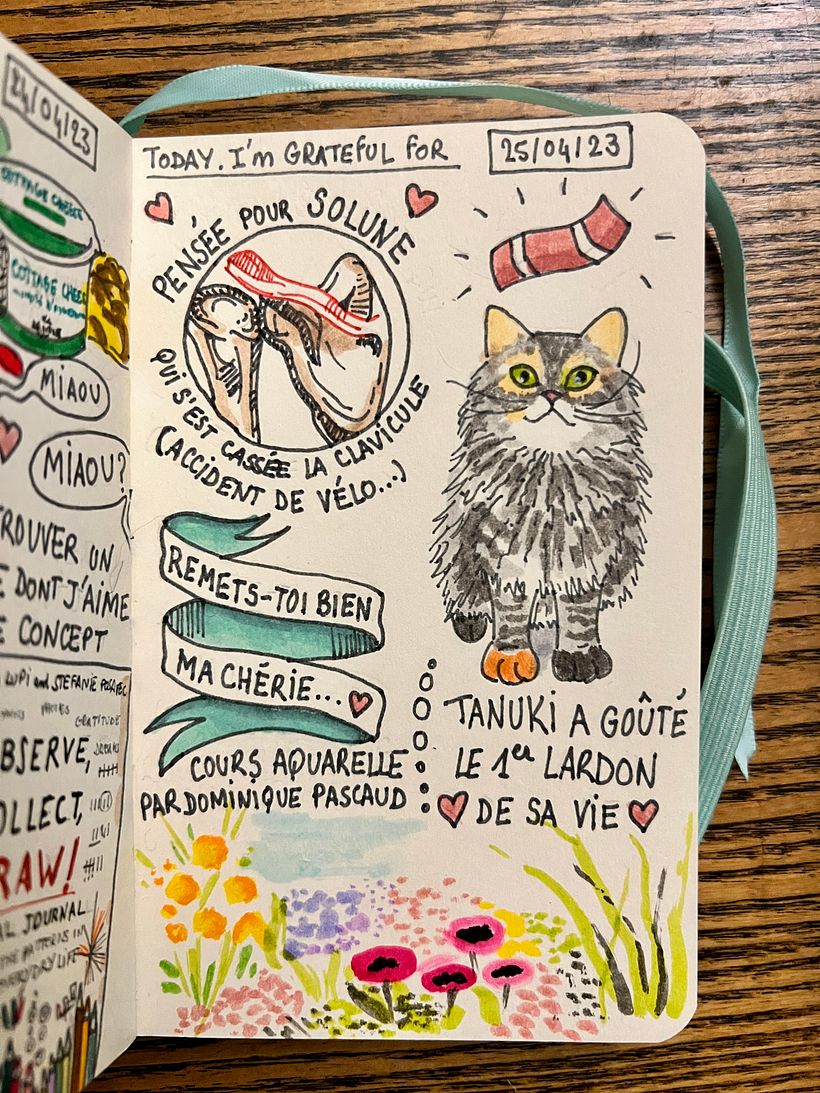 24/04/23
COTTAGE CHEESE
COTTAGE CHEE
MIAOU
MIAOU?
TROUVER UN
E DONT J'AIME
E CONCEPT
LUPI and STEFANIE
GRATITUDE
BSERVE,
OLLECT,
RAW!
AL JOURNAL
PATTERNS IN
EVERYDAY LIFE
TODAY. I'm GRATEFUL FOR
25/04/23
PENSÉE POUR SOLUNE
QUI S'EST CASSÉE LA CLAVICULE
(ACCIDENT DE VÉLO...)
REMETS-TOI BIEN
MA CHÉRIE...
COURS AQUARELLE
PAR DOMINIQUE PASCAUD
TANUKI A GOÛTÉ
LE 1er LARDON
DE SA VIE